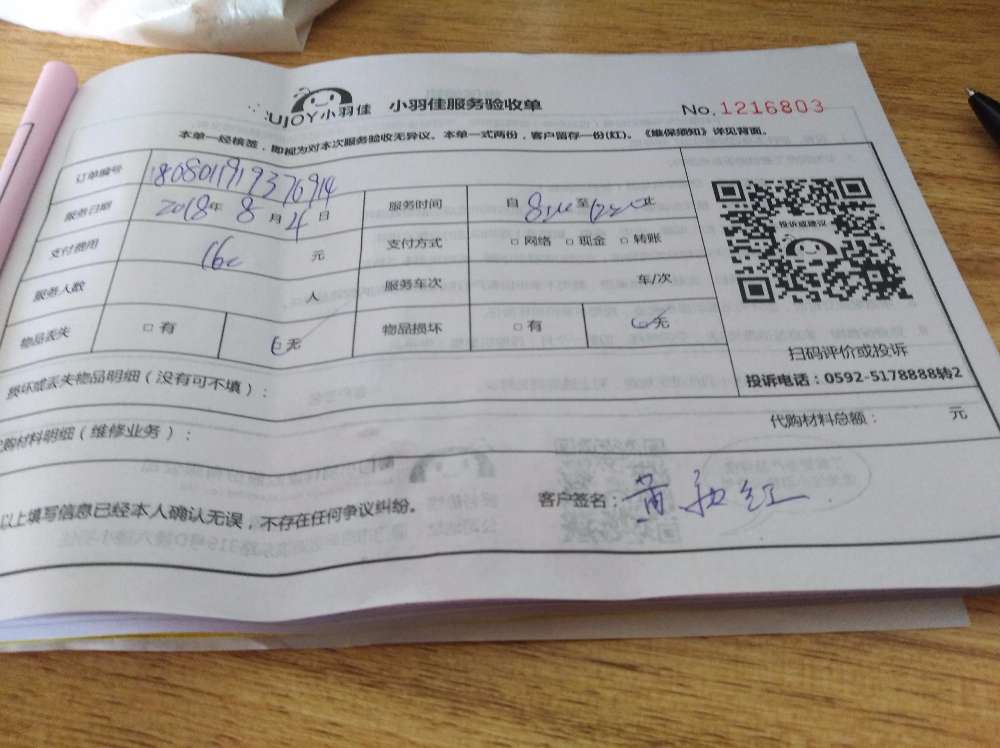 UJOY小羽佳 小羽佳服务验收单 No.1216803
本单一经核签，即视为对本次服务验收无异议。本单一式两份，客户留存一份(红)。《维保须知》详见背面。
订单编号
服务日期 2018年 8月 4日 服务时间 自 至 止
支付费用 元 支付方式 □网络 □现金 □转账
服务人数 人 服务车次 车/次
物品丢失 □有 无 物品损坏 □有 无
投诉或建议
扫码评价或投诉
投诉电话：0592-5178888转2
损坏或丢失物品明细（没有可不填）：
购材料明细（维修业务）： 代购材料总额： 元
以上填写信息已经本人确认无误，不存在任何争议纠纷。 客户签名：黄和红